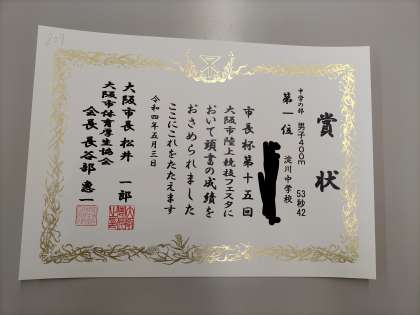 賞状
中学の部 男子400m 53秒42
第一位 淀川中学校
市長杯第十五回
大阪市陸上競技フェスタに
おいて頭書の成績を
おさめられました
ここにこれをたたえます
令和四年五月三日
大阪市長 松井一郎
大阪市体育厚生協会
会長 長谷部惠一